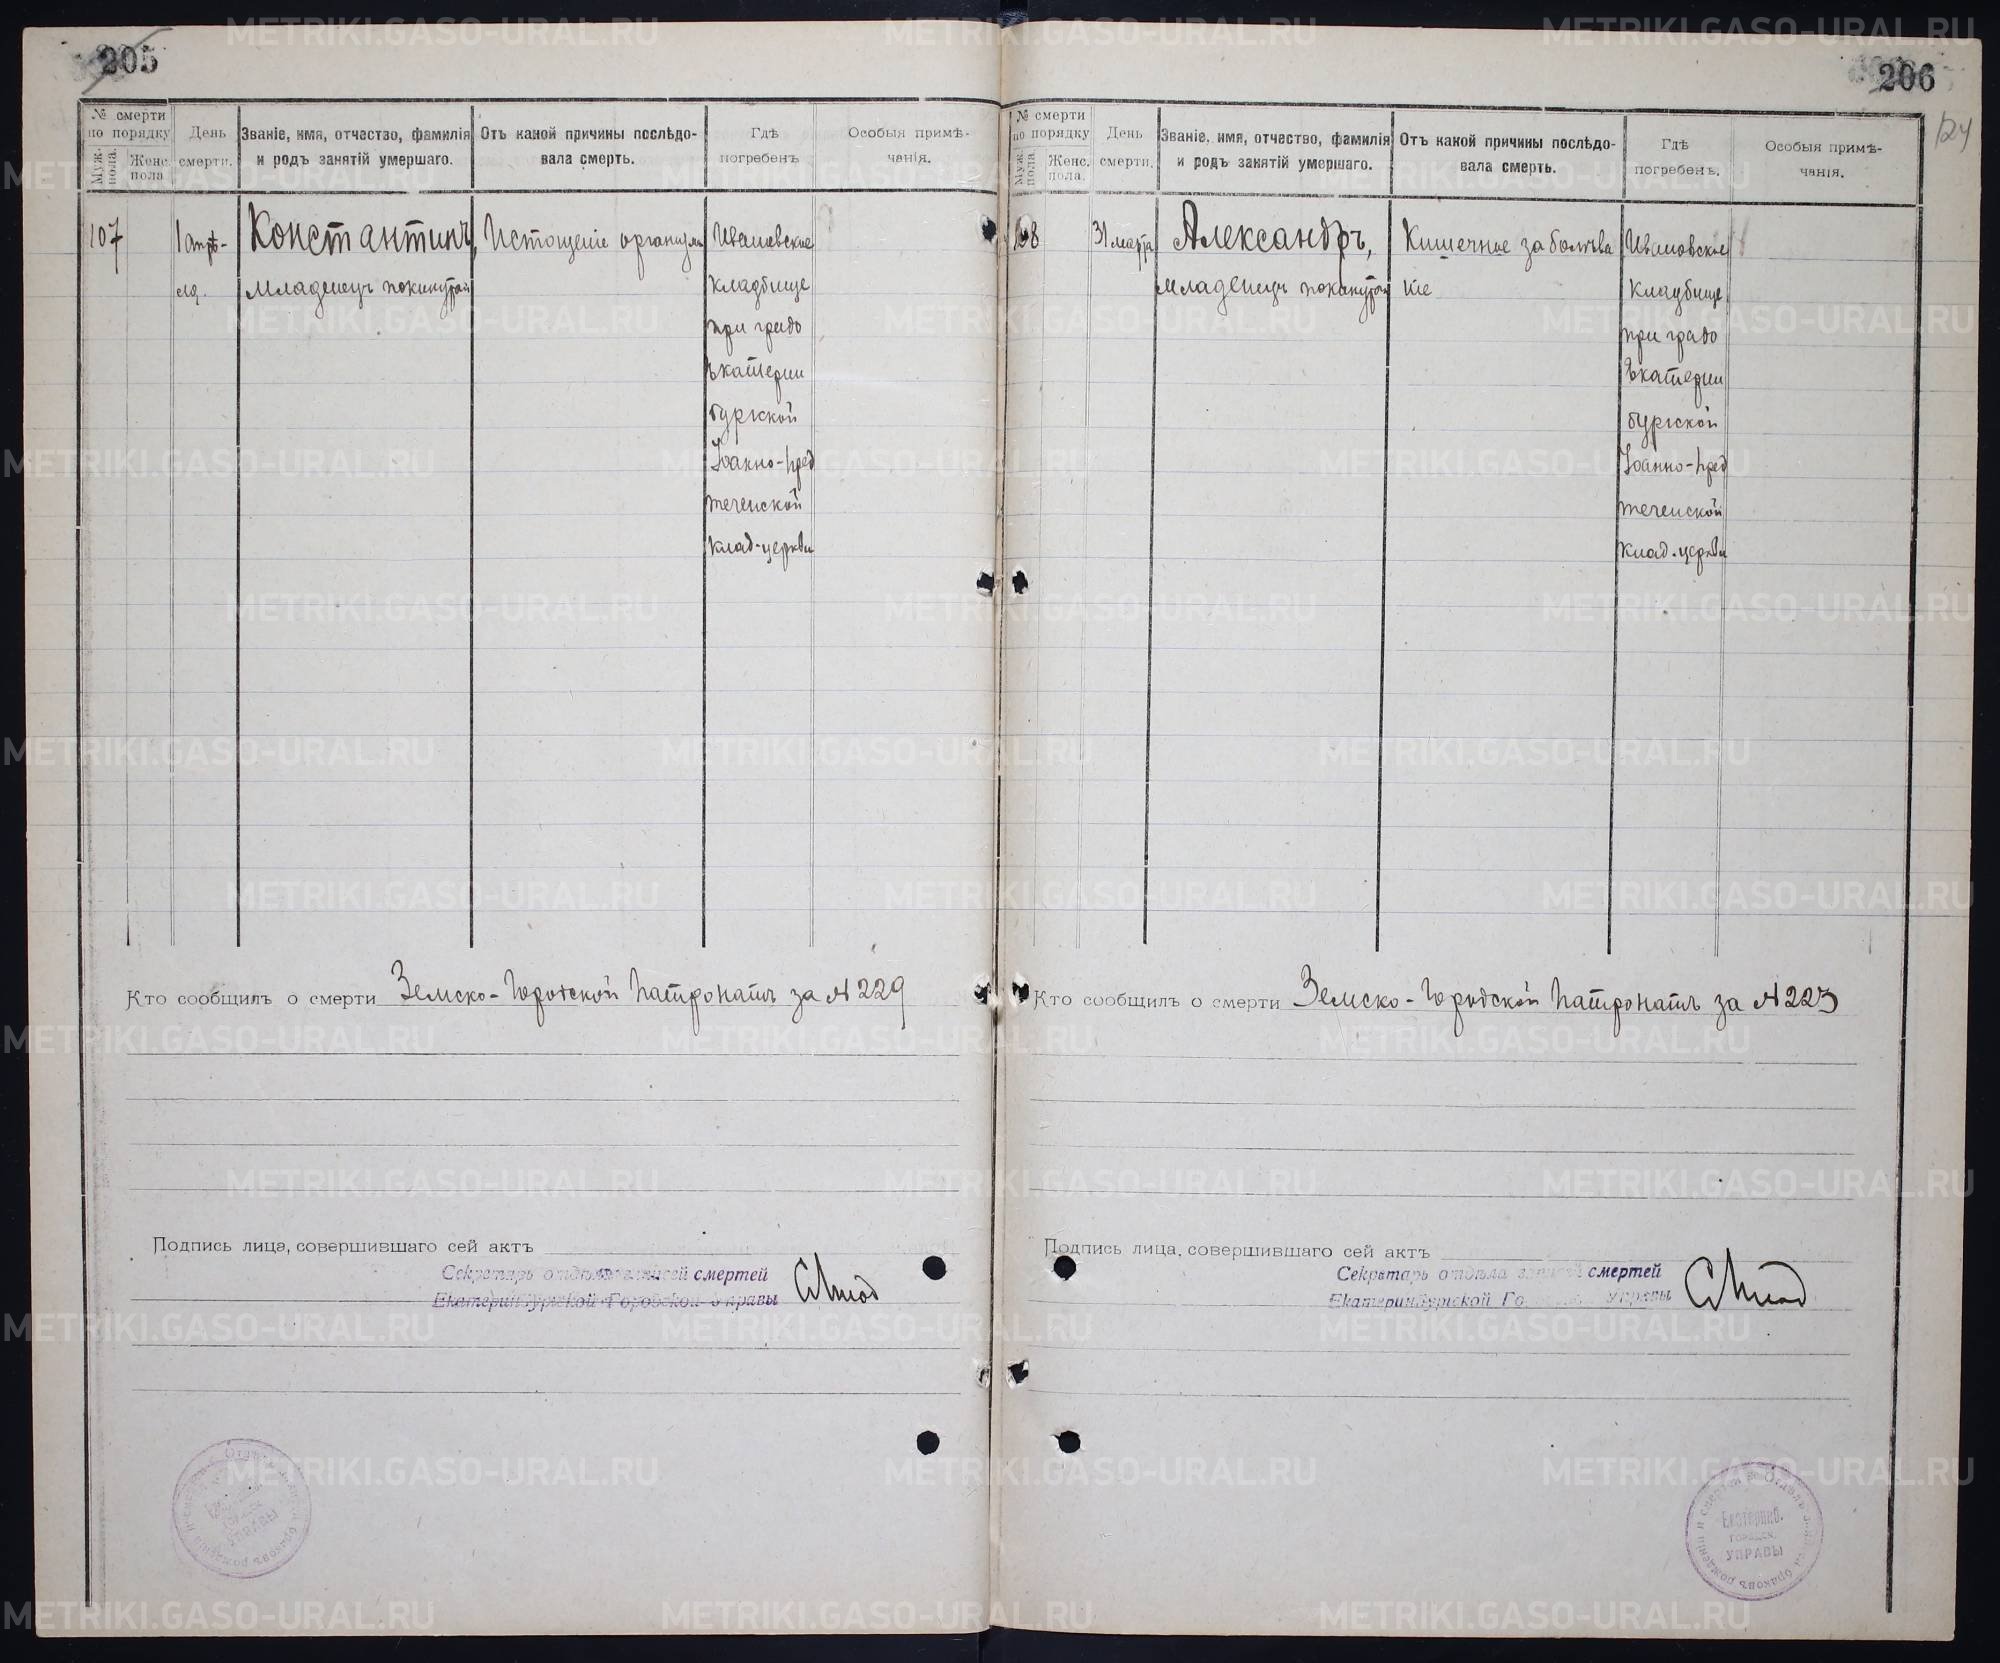 205
№ смерти по порядку
Муж. пола.
Женс. пола
День смерти.
Званіе, имя, отчество, фамилія и родъ занятій умершаго.
Отъ какой причины послѣдовала смерть.
Гдѣ погребенъ
Особыя примѣчанія.
107
1 апрѣ-
ля.
Константинъ,
младенецъ покинутый
Истощеніе организма
Ивановское
кладбище
при градо
Екатерин
бургской
Іоанно-Пред
теченской
клад-церкви
Кто сообщилъ о смерти Земско-Городской Патронатъ за № 229
Подпись лица, совершившаго сей актъ
Секретарь отдѣла записей смертей
Екатеринбургской Городской Управы
206
124
№ смерти по порядку
Муж. пола.
Женс. пола.
День смерти.
Званіе, имя, отчество, фамилія и родъ занятій умершаго.
Отъ какой причины послѣдовала смерть.
Гдѣ погребенъ.
Особыя примѣчанія.
108
31 марта
Александръ,
младенецъ покинутый
Кишечное заболѣва
ніе
Ивановское
кладбище
при градо
Екатерин
бургской
Іоанно-Пред
теченской
клад.церкви
Кто сообщилъ о смерти Земско-Городской Патронатъ за № 223
Подпись лица, совершившаго сей актъ
Секретарь отдѣла записей смертей
Екатеринбургской Го Управы
Екатеринб.
Городск.
УПРАВЫ
METRIKI.GASO-URAL.RU